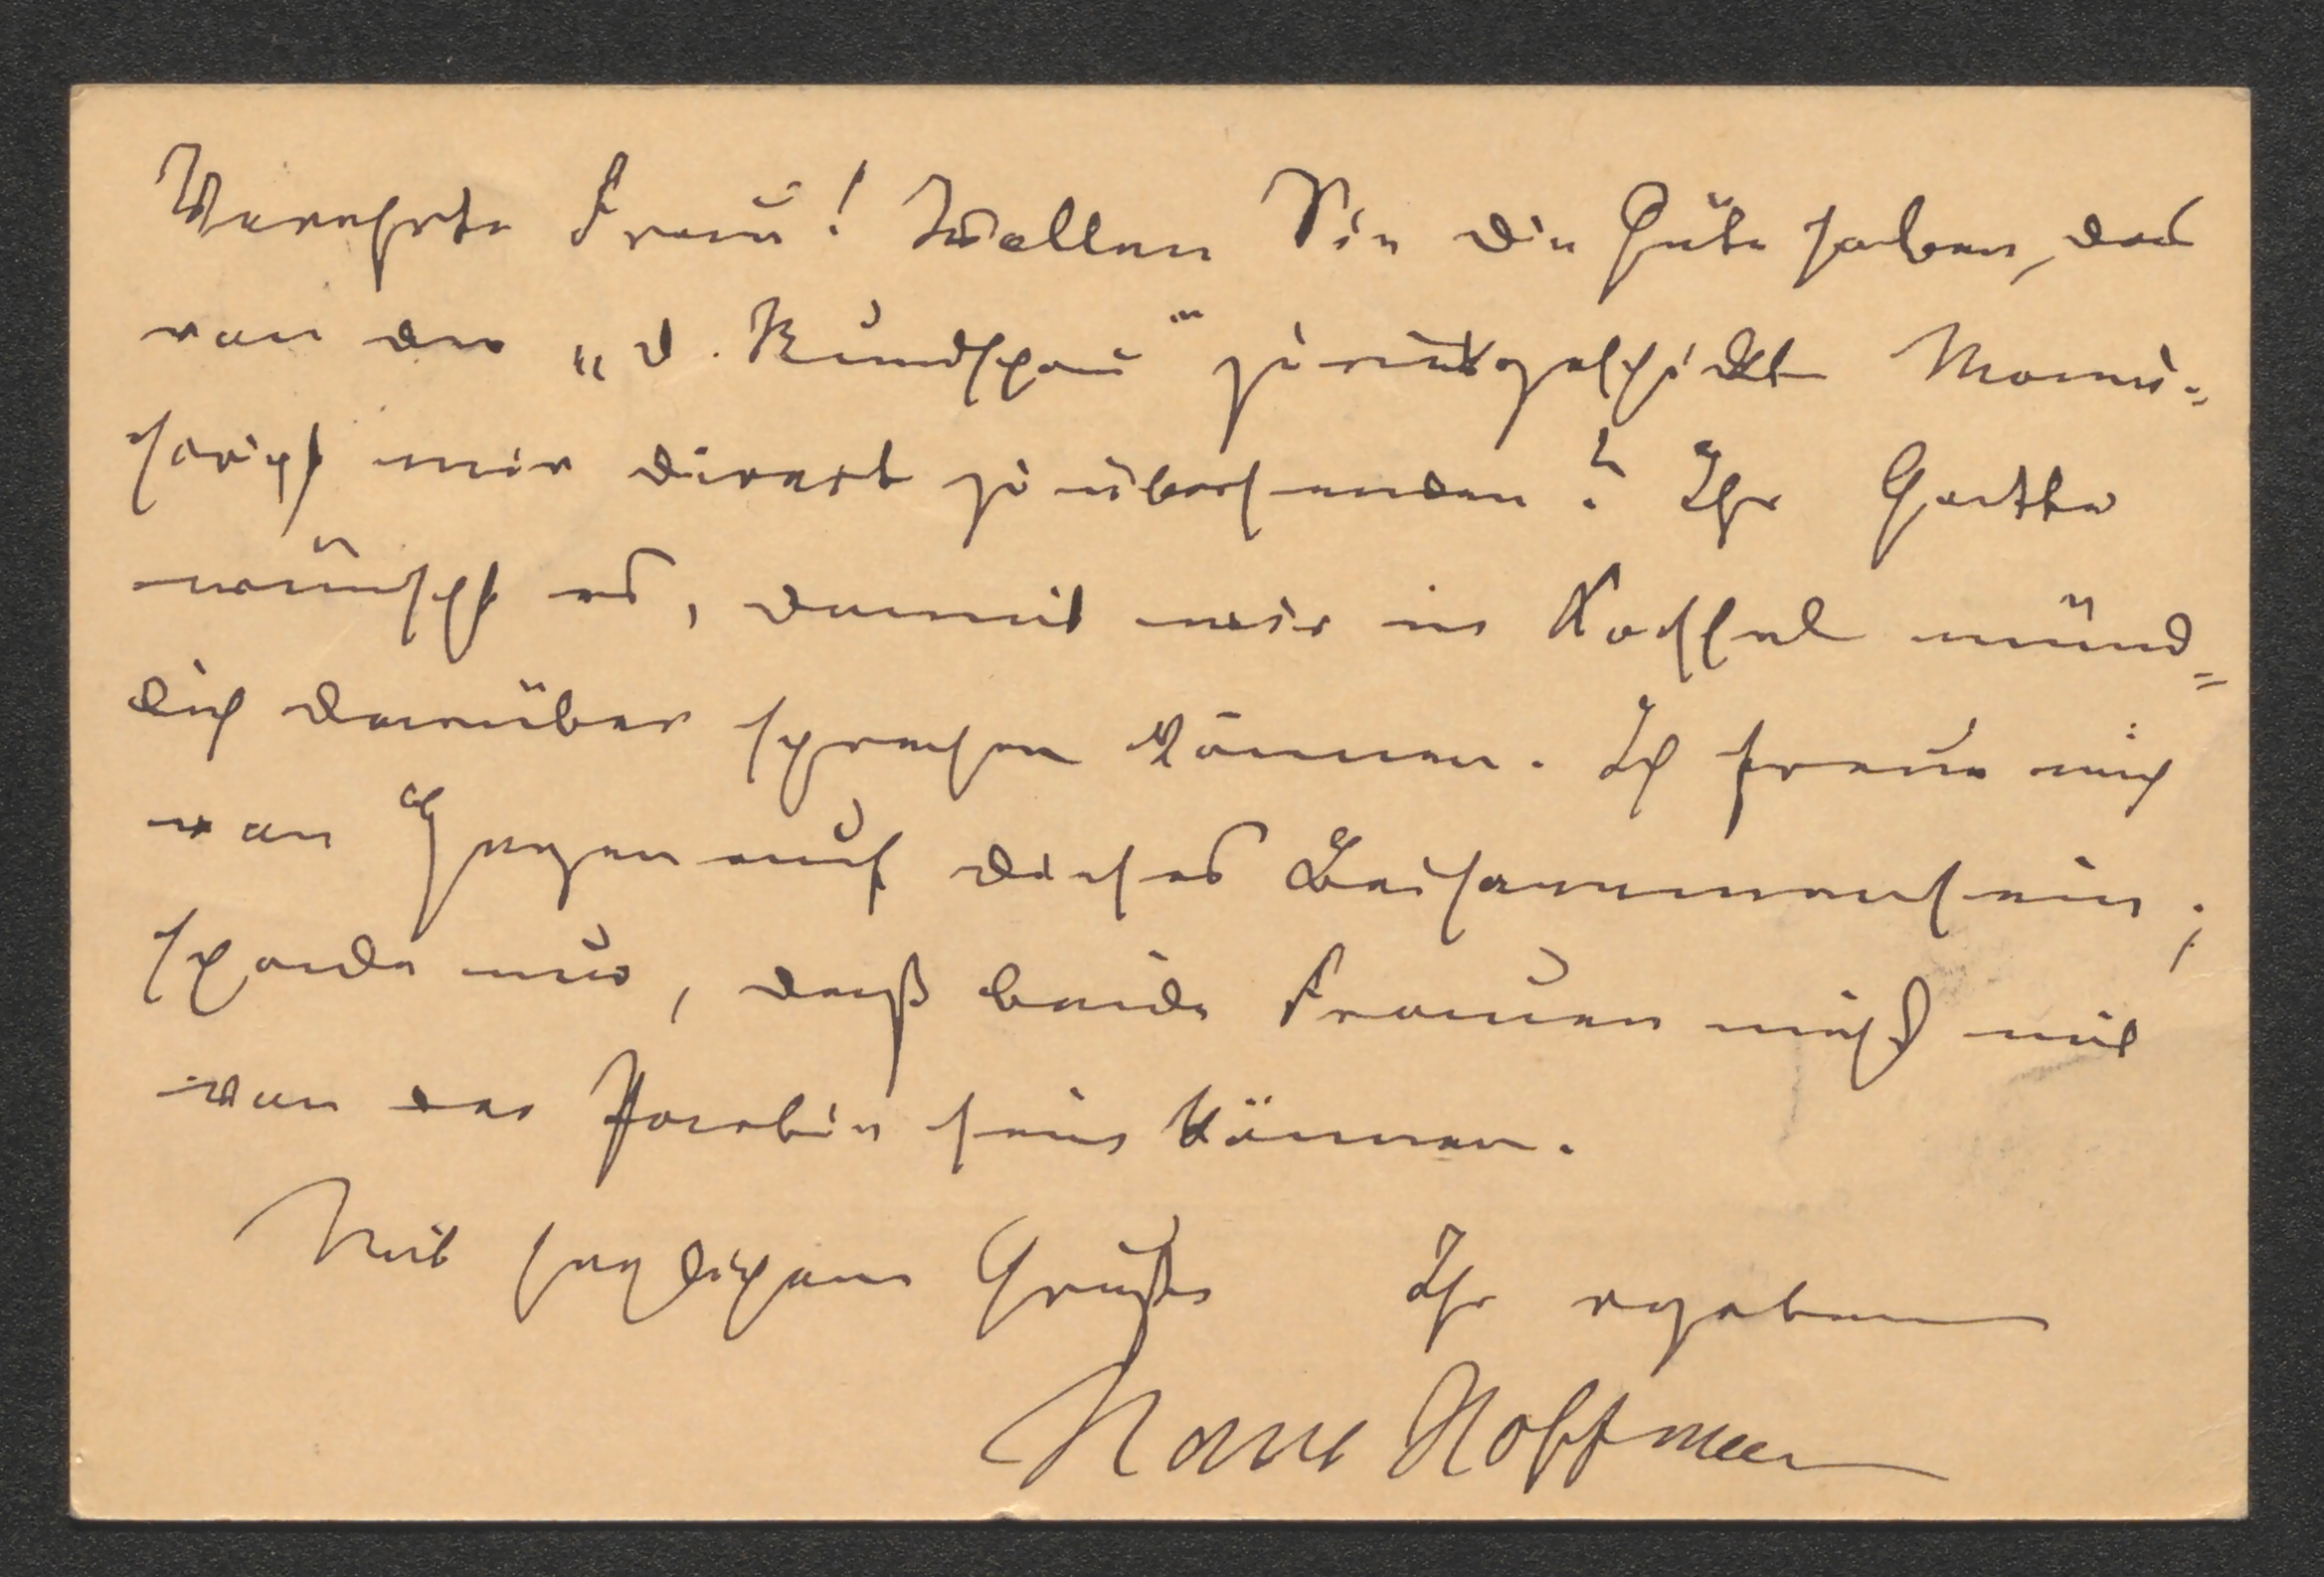 Verehrte Frau! Wollen Sie die Güte haben, das
von der „D. Rundschau“ zurückgeschickte Manu-
script mir direct zu übersenden? Ihr Gatte
wünscht es, damit wir in Kassel münd-
lich darüber sprechen können. Ich freue mich
von Herzen auf dieses Beisammensein;
schade nur, daß beide Frauen nicht mit
von der Parthie sein können.
Mit herzlichem Gruße Ihr ergebener
Hans Hoffmann